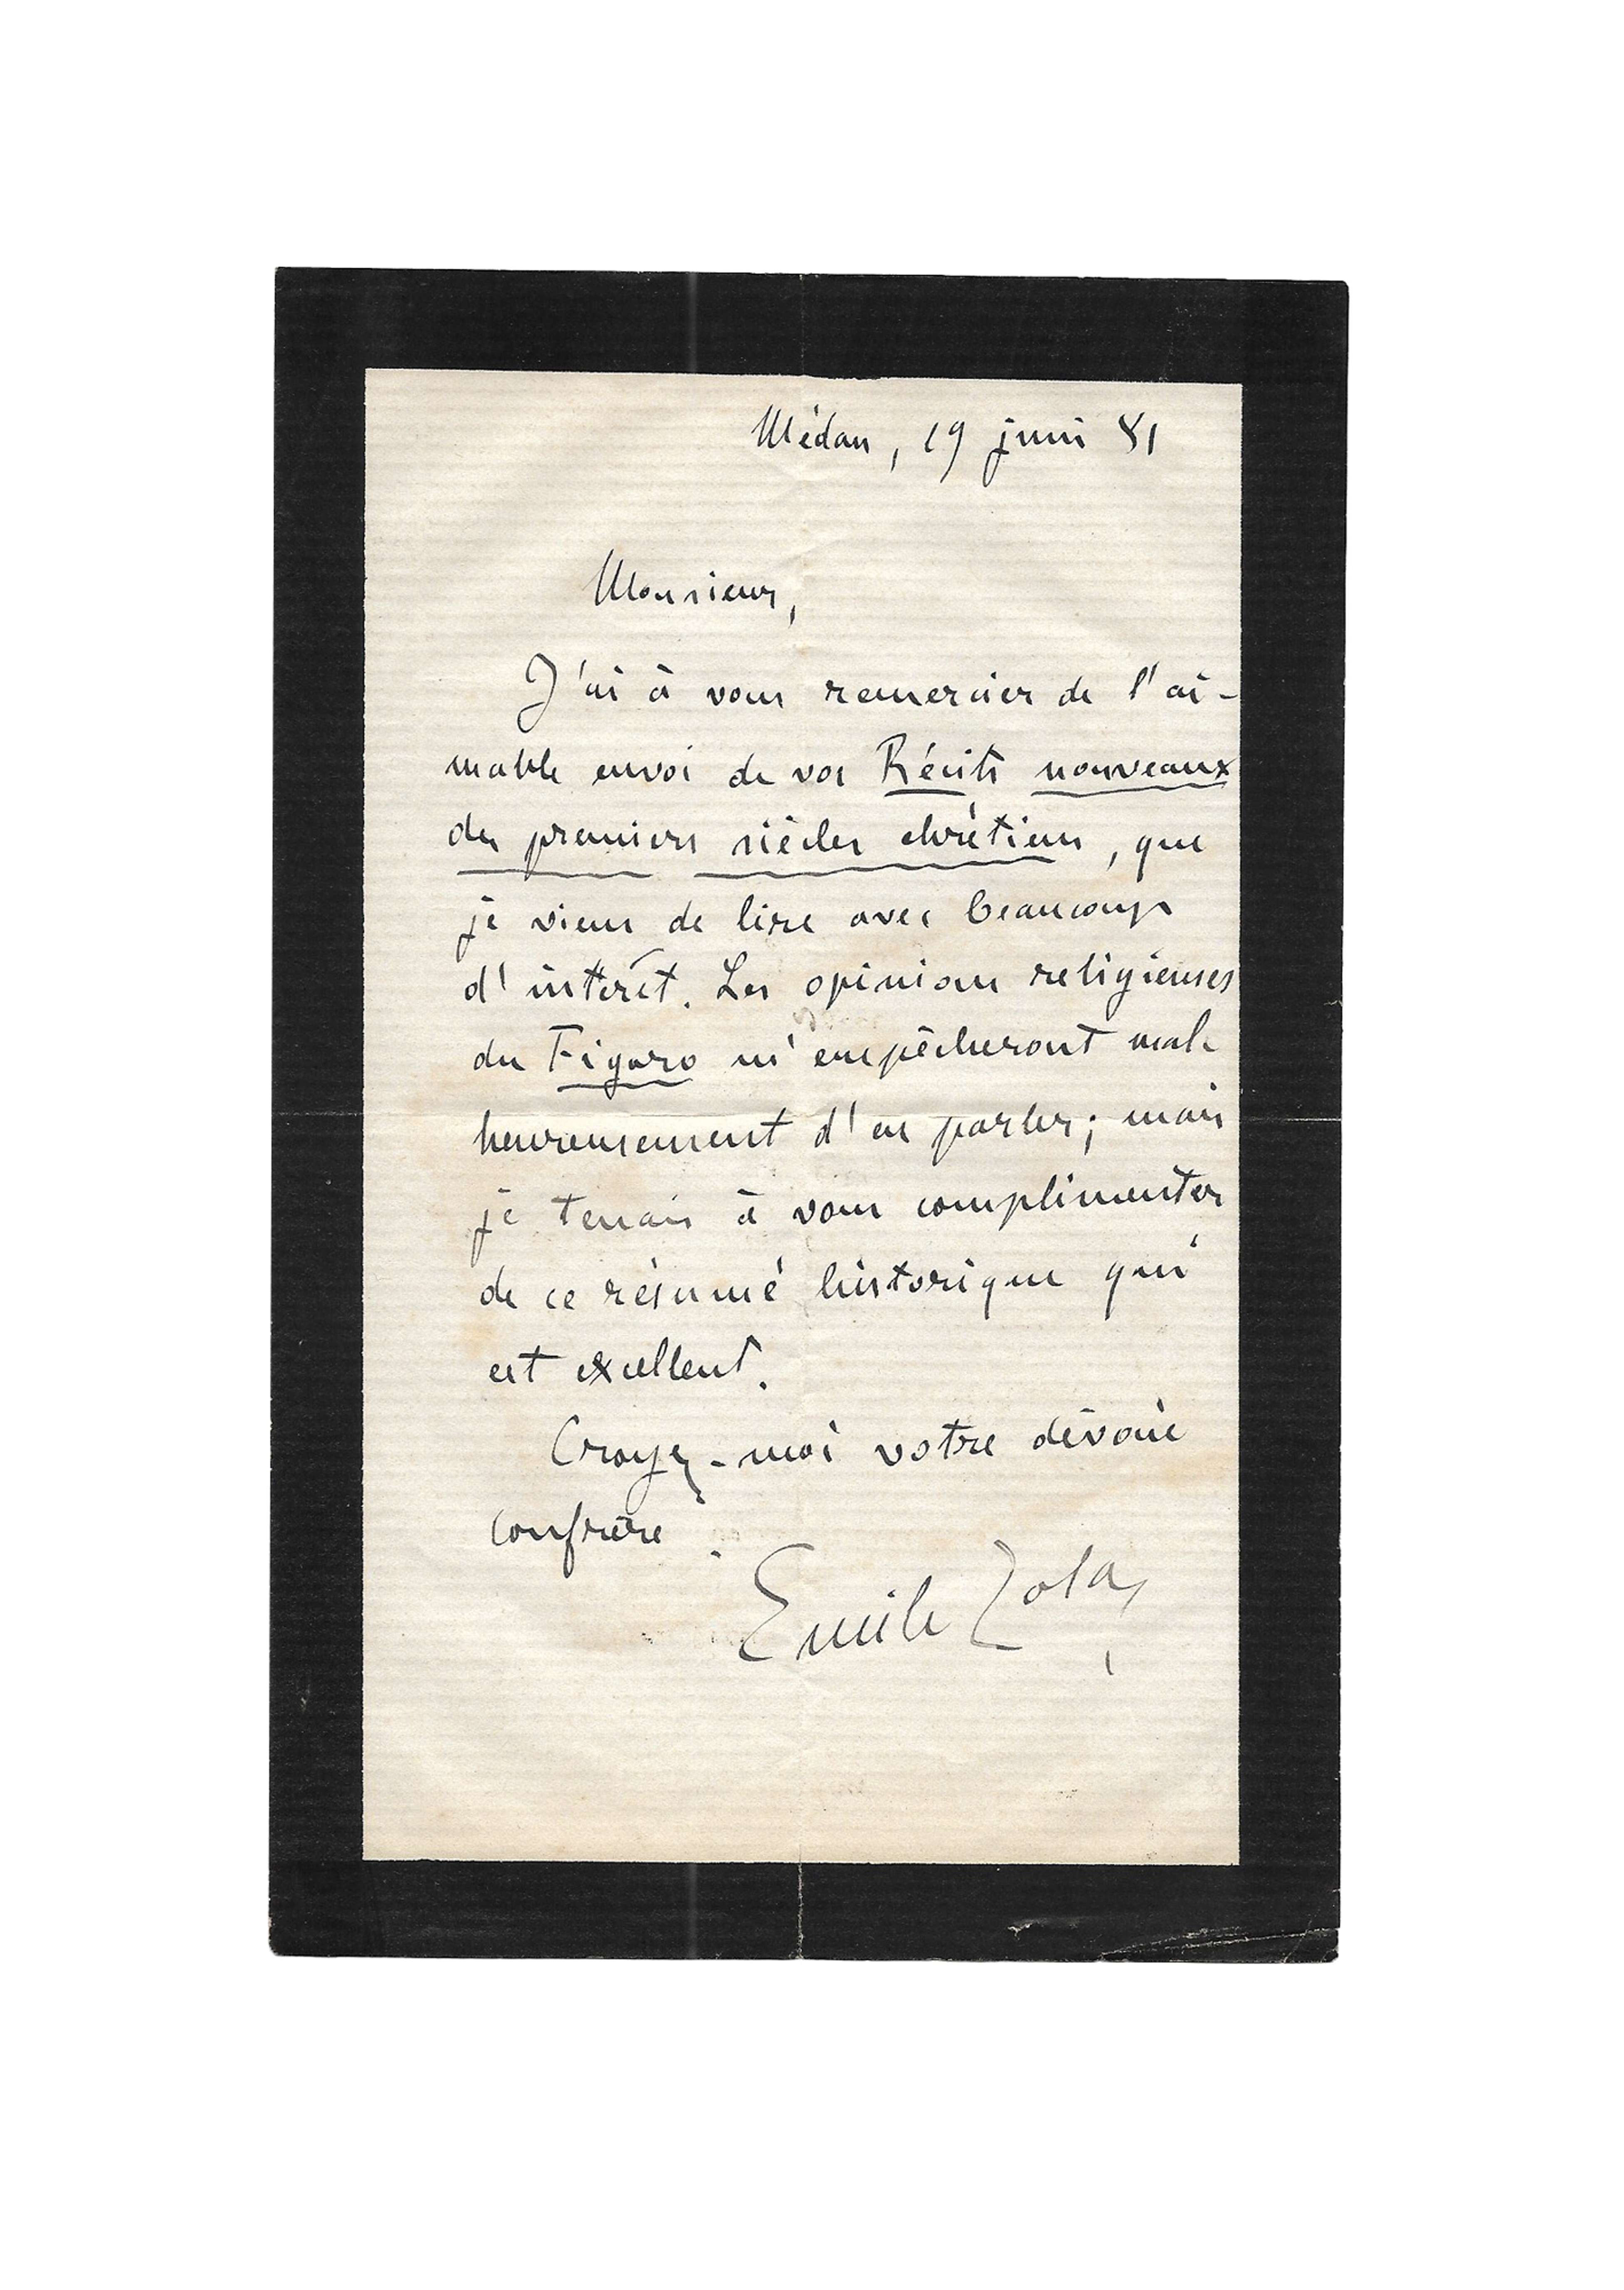 Médan, 19 juin 81
Monsieur,
J'ai à vous remercier de l'ai-
mable envoi de vos Récits nouveaux
des premiers siècles chrétiens, que
je viens de lire avec beaucoup
d'intérêt. Les opinions religieuses
du Figaro m'empêcheront mal-
heureusement d'en parler; mais
je tenais à vous complimenter
de ce résumé historique qui
est excellent.
Croyez-moi votre dévoué
confrère.
Emile Zola